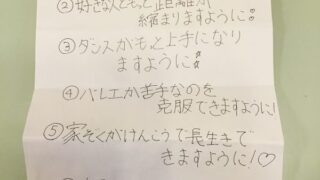 ②好きな人ともっと距離が
縮まりますように!
③ダンスがもっと上手になり
ますように!
④バレエが苦手なのを
克服できますように!
⑤家そくがけんこうで長生きで
きますように!♡